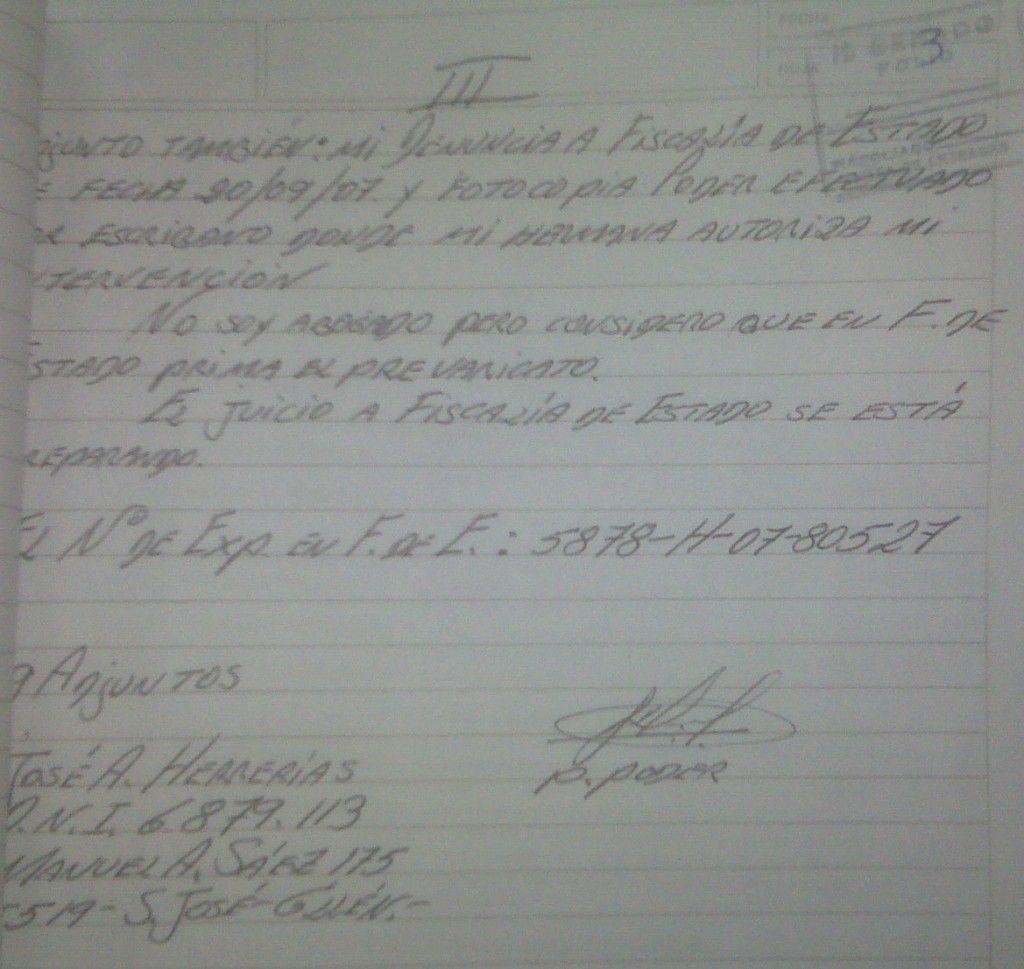 FECHA
3
FOLIO
III
junto también: mi Denuncia a Fiscalía de Estado
e fecha 20/09/07. y fotocopia Poder efectuado
or escribano donde mi hermana autoriza mi
tervención
No soy abogado pero considero que en F. de
Estado prima el prevaricato.
El juicio a Fiscalía de Estado se está
reparando.
El Nº de Exp. en F. de E.: 5878-H-07-80527
9 Adjuntos
José A. Herrerías
D.N.I. 6.879.113
p. poder
Manuel A. Sáez 175
5519- S. José- G